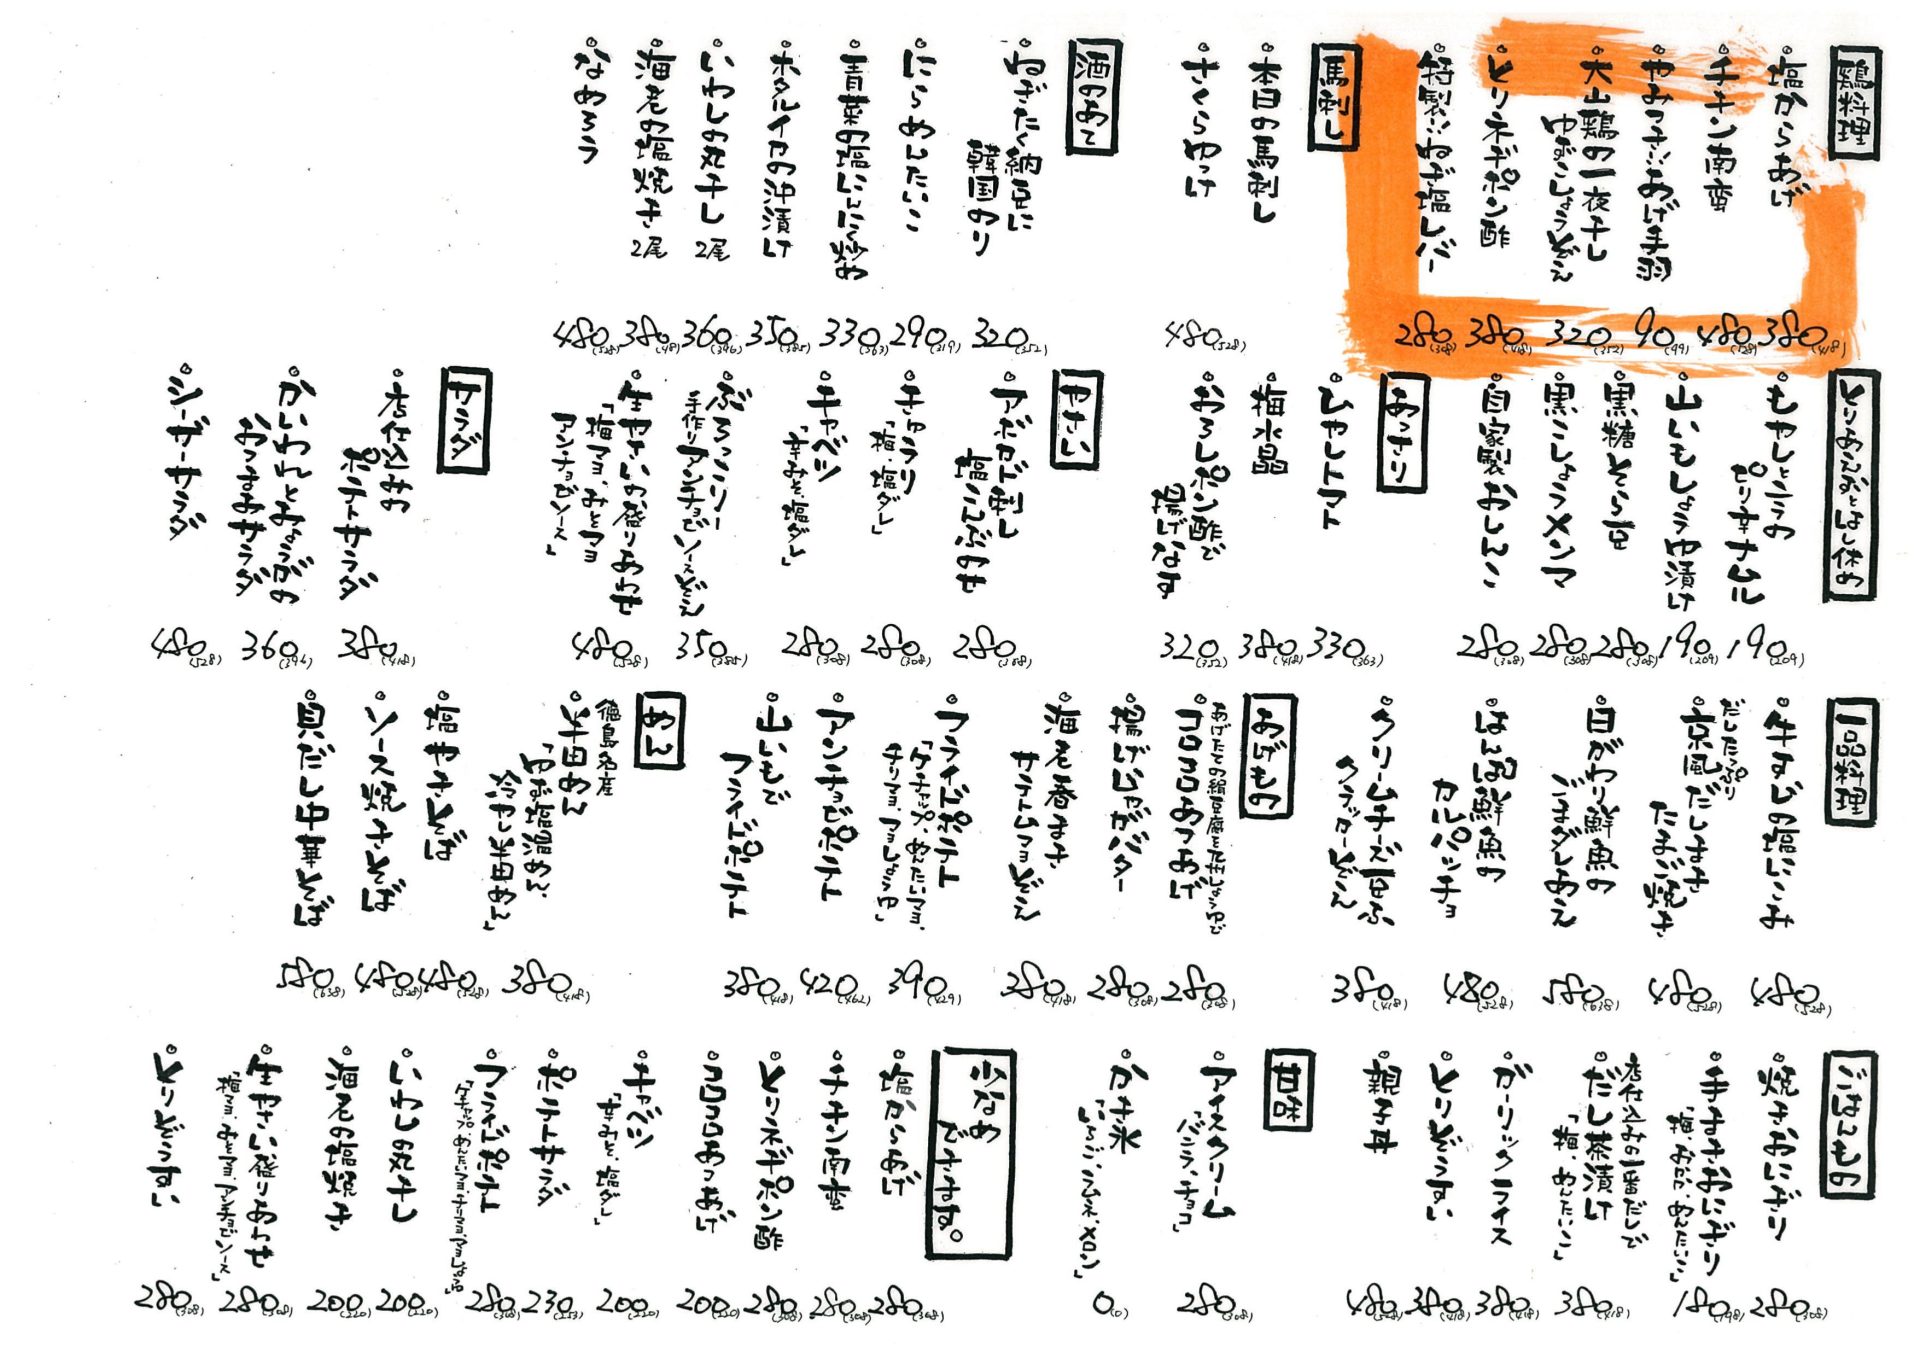 鶏料理
塩からあげ
380(418)
チキン南蛮
480(528)
やみつき!!あげ手羽
90(99)
大山鶏の一夜干し
ゆずこしょうぞえ
320(352)
とりネギポン酢
380(418)
特製!!ねぎ塩レバー
280(308)
馬刺し
本日の馬刺し
さくらユッケ
480(528)
酒のあて
ねぎだく納豆に
韓国のり
320(352)
にらめんたいこ
290(319)
青菜の塩にんにく炒め
330(363)
ホタルイカの沖漬け
350(385)
いわしの丸干し 2尾
360(396)
海老の塩焼き 2尾
380(418)
なめろう
480(528)
とりあえずとはし休め
もやしとニラの
ピリ辛ナムル
190(209)
山いもしょうゆ漬け
190(209)
黒糖そら豆
280(308)
黒こしょうメンマ
280(308)
自家製おしんこ
280(308)
あっさり
ひやしトマト
330(363)
梅水晶
380(418)
おろしポン酢で
揚げなす
320(352)
やさい
アボカド刺し
塩こんぶのせ
280(308)
キュウリ
「梅・塩ダレ」
280(308)
キャベツ
「辛みそ・塩ダレ」
280(308)
ぶろっこりー
手作りアンチョビソースぞえ
350(385)
生やさいの盛りあわせ
「梅マヨ、みそマヨ
アンチョビソース」
480(528)
サラダ
店仕込みの
ポテトサラダ
380(418)
かいわれとみょうがの
おつまみサラダ
360(396)
シーザーサラダ
480(528)
一品料理
牛すじの塩にこみ
480(528)
だしたっぷり
京風だしまき
たまご焼き
480(528)
日がわり鮮魚の
ごまダレあえ
580(638)
はんぱ鮮魚の
カルパッチョ
480(528)
クリームチーズ豆ふ
クラッカーぞえ
380(418)
あげもの
あげたての絹豆腐をだしょうゆで
コロコロあつあげ
280(308)
揚げじゃがバター
280(308)
海老春まき
サテトムマヨぞえ
380(418)
フライドポテト
「ケチャップ、めんたいマヨ、
チリマヨ、マヨしょうゆ」
390(429)
アンチョビポテト
420(462)
山いもで
フライドポテト
380(418)
めん
徳島名産
半田めん
「ゆず塩温めん、
冷やし半田めん」
380(418)
塩やきそば
480(528)
ソース焼きそば
480(528)
貝だし中華そば
580(638)
ごはんもの
焼きおにぎり
280(308)
キチキチおにぎり
「梅、お品、めんたいこ」
180(198)
店仕込みの一番だしで
だし茶漬け
「梅、めんたいこ」
380(418)
ガーリックライス
380(418)
とりぞうすい
380(418)
親子丼
480(528)
甘味
アイスクリーム
「バニラ、チョコ」
280(308)
カキ氷
「いちご、ラムネ、メロン」
0(0)
少なめ
できます。
塩からあげ
280(308)
チキン南蛮
280(308)
とりネギポン酢
280(308)
コロコロあつあげ
200(220)
キャベツ
「辛みそ、塩ダレ」
200(220)
ポテトサラダ
230(253)
フライドポテト
「ケチャップ、めんたいマヨ、チリマヨ、マヨしょうゆ」
280(308)
いわしの丸干し
200(220)
海老の塩焼き
200(220)
生やさい盛りあわせ
「梅マヨ、みそマヨ、アンチョビソース」
280(308)
とりぞうすい
280(308)